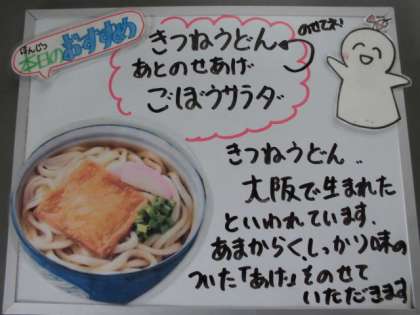 ほんじつ
本日のおすすめ
きつねうどん
のせてネ!
あとのせあげ
ごぼうサラダ
きつねうどん‥
大阪で生まれた
といわれています、
あまからく、しっかり味の
ついた「あげ」をのせて
いただきます